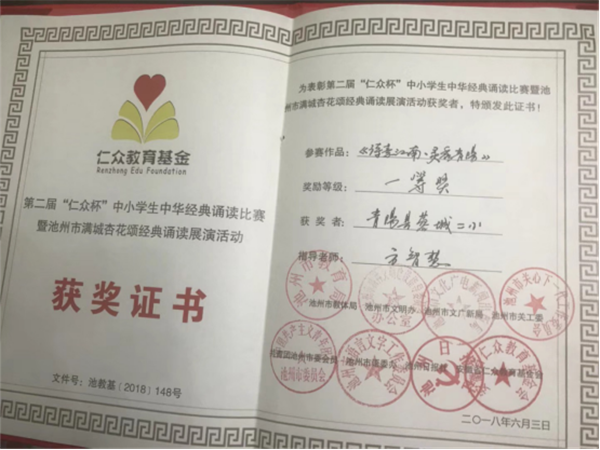 仁众教育基金
Renzhong Edu Foundation
第二届“仁众杯”中小学生中华经典诵读比赛
暨池州市满城杏花颂经典诵读展演活动
获奖证书
文件号：池教基〔2018〕148号
为表彰第二届“仁众杯”中小学生中华经典诵读比赛暨池
州市满城杏花颂经典诵读展演活动获奖者，特颁发此证书！
参赛作品：《诗意江南·灵秀青阳》
奖励等级：一等奖
获奖者：青阳县蓉城二小
指导老师：方智慧
池州市教体局 池州市文明办 池州市文广新局 池州市关工委
共青团池州市委员会 池州市语委办 池州日报社 安徽省仁众教育基金会
二〇一八年六月三日